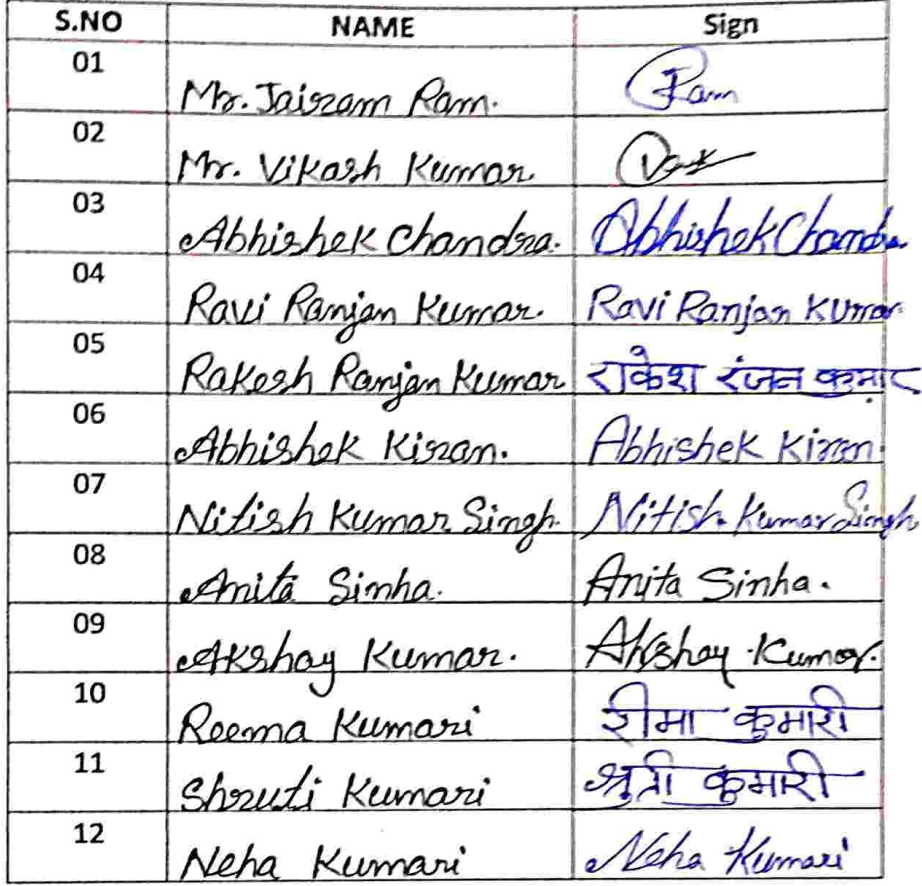 S.NO NAME Sign
01 Mr. Jairam Ram. Ram
02 Mr. Vikash Kumar.
03 Abhishek Chandra. Abhishek Chandra
04 Ravi Ranjan Kumar. Ravi Ranjan Kumar
05 Rakesh Ranjan Kumar राकेश रंजन कुमार
06 Abhishek Kiran. Abhishek Kiran.
07 Nitish Kumar Singh. Nitish Kumar Singh
08 Anita Sinha. Anita Sinha.
09 Akshay Kumar. Akshay Kumar.
10 Reema Kumari रीमा कुमारी
11 Shruti Kumari श्रुती कुमारी
12 Neha Kumari Neha Kumari